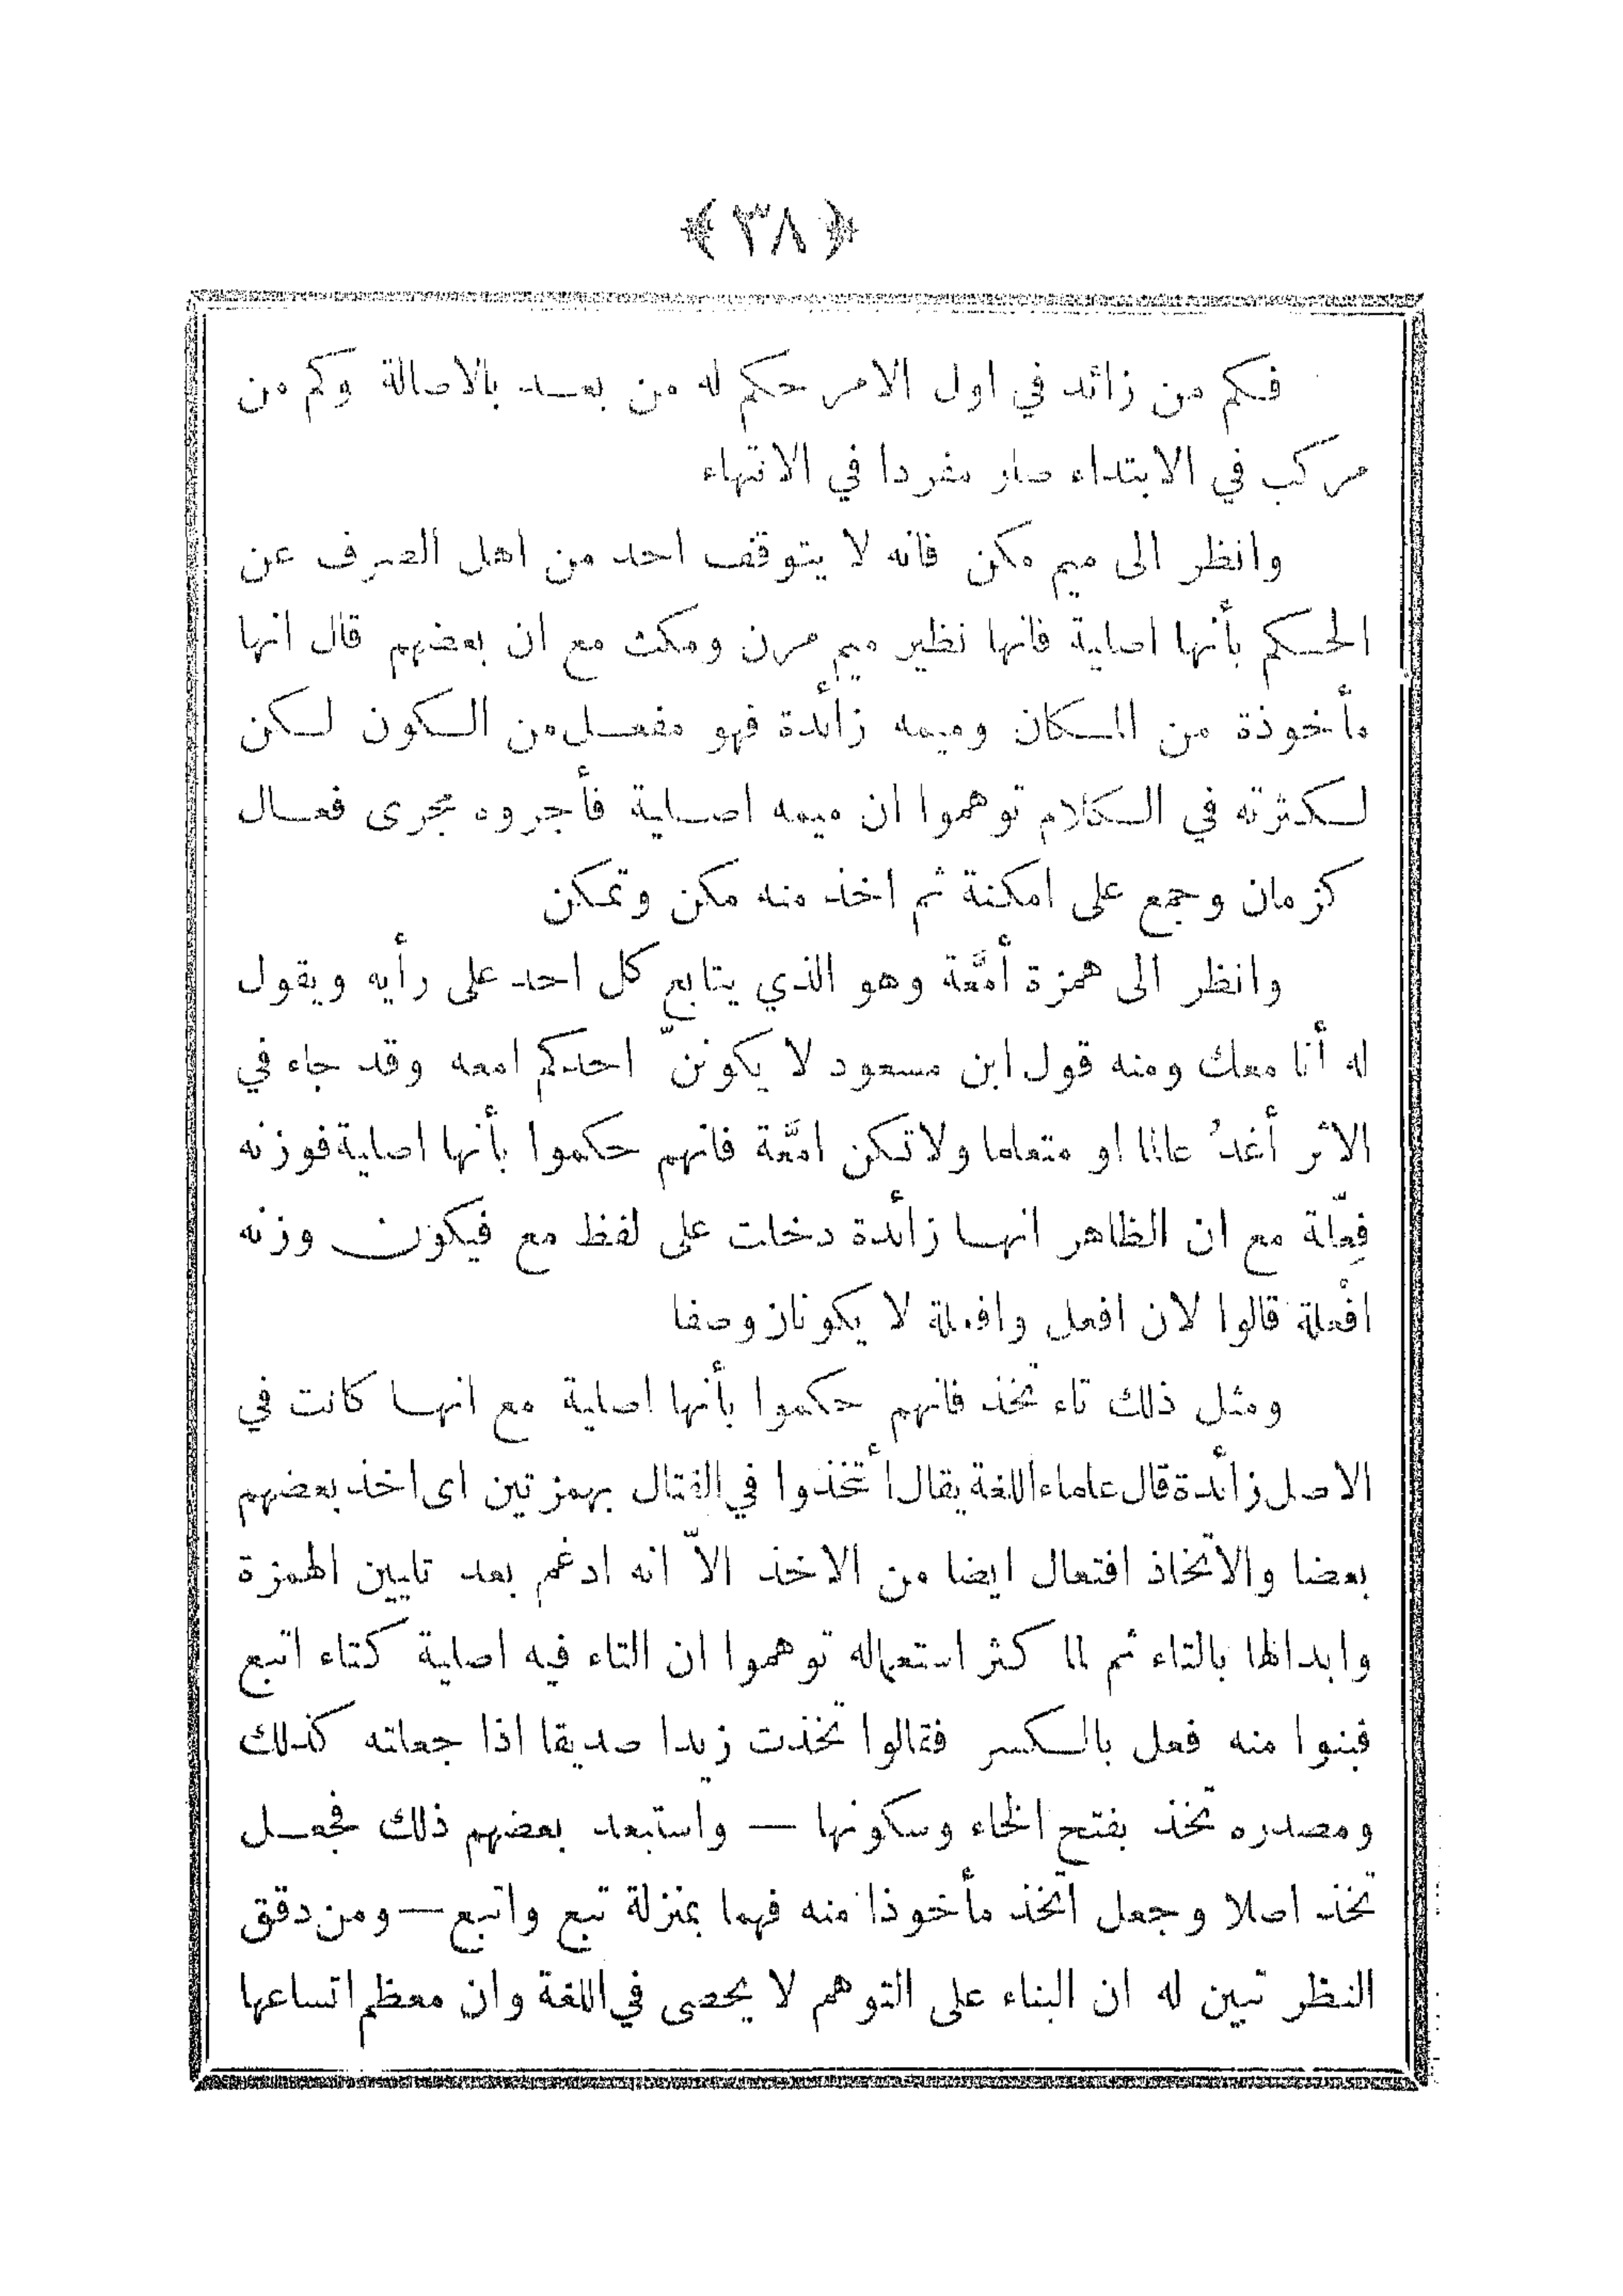 ﴿٣٨﴾
فكم من زائد في اول الامر حكم له من بعد بالاصالة وكم من
مركب في الابتداء صار مفردا في الانتهاء
وانظر الى ميم مكن فانه لا يتوقف احد من اهل الصرف عن
الحكم بأنها اصلية فانها نظير ميم مرن ومكث مع ان بعضهم قال انها
مأخوذة من المكان وميمه زائدة فهو مفعل من الكون لكن
لكثرته في الكلام توهموا ان ميمه اصلية فأجروه مجرى فعال
كزمان وجمع على امكنة ثم اخذ منه مكن وتمكن
وانظر الى همزة أمَّعة وهو الذي يتابع كل احد على رأيه ويقول
له أنا معك ومنه قول ابن مسعود لا يكوننّ احدكم امعه وقد جاء في
الاثر أغدُ عالما او متعلما ولا تكن امَّعة فانهم حكموا بأنها اصلية فوزنه
فِعّلة مع ان الظاهر انها زائدة دخلت على لفظ مع فيكون وزنه
افْعلة قالوا لان افعل وافعلة لا يكونان وصفا
ومثل ذلك تاء تخذ فانهم حكموا بأنها اصلية مع انها كانت في
الاصل زائدة قال علماء اللغة يقال أتخذوا في القتال بهمزتين اى اخذ بعضهم
بعضا والاتخاذ افتعال ايضا من الاخذ الاّ انه ادغم بعد تليين الهمزة
وابدالها بالتاء ثم لما كثر استعماله توهموا ان التاء فيه اصلية كتاء اتبع
فبنوا منه فعل بالكسر فقالوا تخذت زيدا صديقا اذا جعلته كذلك
ومصدره تخذ بفتح الخاء وسكونها — واستبعد بعضهم ذلك فجعل
تخذ اصلا وجعل اتخذ مأخوذا منه فهما بمنزلة تبع واتبع — ومن دقق
النظر تبين له ان البناء على التوهم لا يحصى في اللغة وان معظم اتساعها